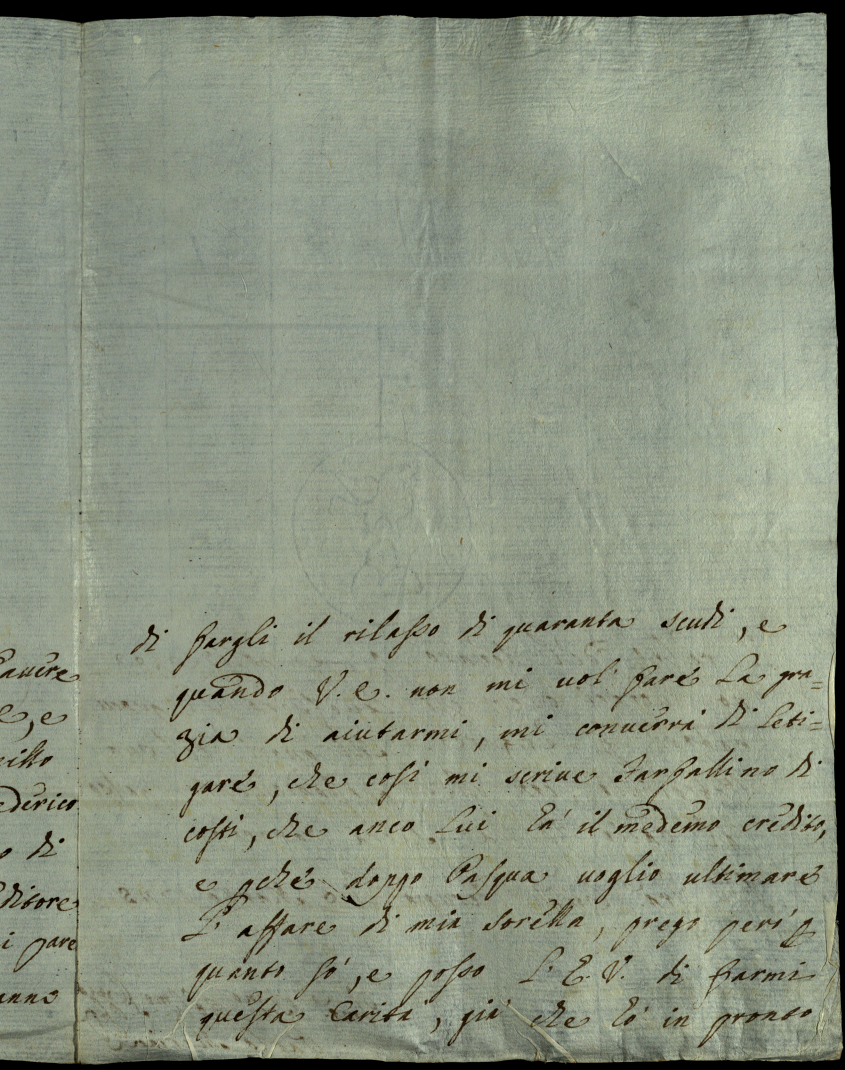 di fargli il rilasso di quaranta scudi, e
quando V. E. non mi vol' fare La gra=
zia di aiutarmi, mi converrà di Leti=
gare, che così mi scrive Farfallino di
costì, che anco Lui hà il medemo credito,
e pché doppo Pasqua voglio ultimare
L'affare di mia Sorella, prego però p
quanto sò, e posso L' E V. di farmi
questa Carità, già che hò in pronto
havere
e, e
ederico
o di
ditore
i pare
anno